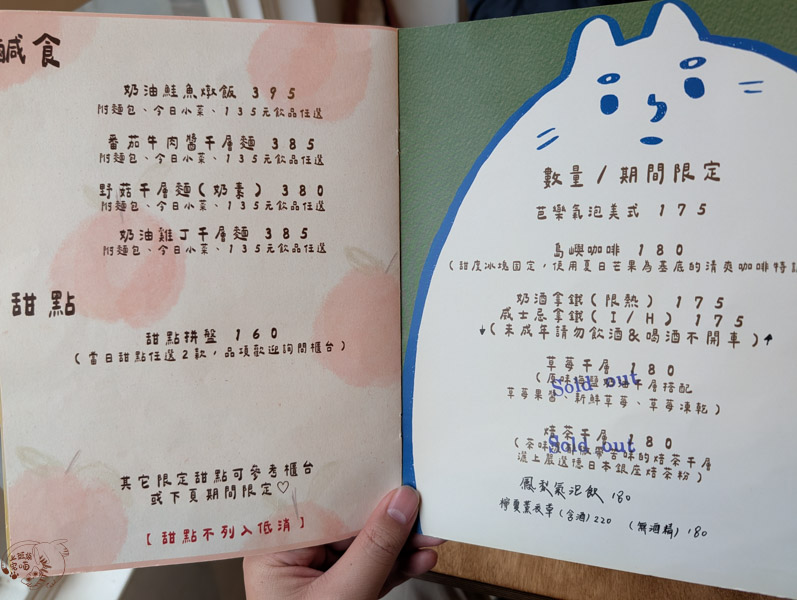 鹹食
奶油鮭魚燉飯 395
附麵包、今日小菜、135元飲品任選
番茄牛肉醬千層麵 385
附麵包、今日小菜、135元飲品任選
野菇千層麵(奶素) 380
附麵包、今日小菜、135元飲品任選
奶油雞丁千層麵 385
附麵包、今日小菜、135元飲品任選
甜點
甜點拼盤 160
(當日甜點任選2款,品項歡迎詢問櫃台)
其它限定甜點可參考櫃台
或下頁期間限定♡
[甜點不列入低消]
數量/期間限定
芭樂氣泡美式 175
島嶼咖啡 180
(甜度冰塊固定,使用夏日芒果為基底的清爽咖啡特調
奶酒拿鐵(限熱) 175
威士忌拿鐵(I/H) 175
↓(未成年請勿飲酒&喝酒不開車)↑
草莓千層 180
Sold out
千層搭配
草莓果醬、新鮮草莓、草莓凍乾)
焙茶千層 180
Sold out
苦味的焙茶千層
選上嚴選德日本銀座焙茶粉)
鳳梨氣泡飲 180
(含酒)220 (無酒精) 180